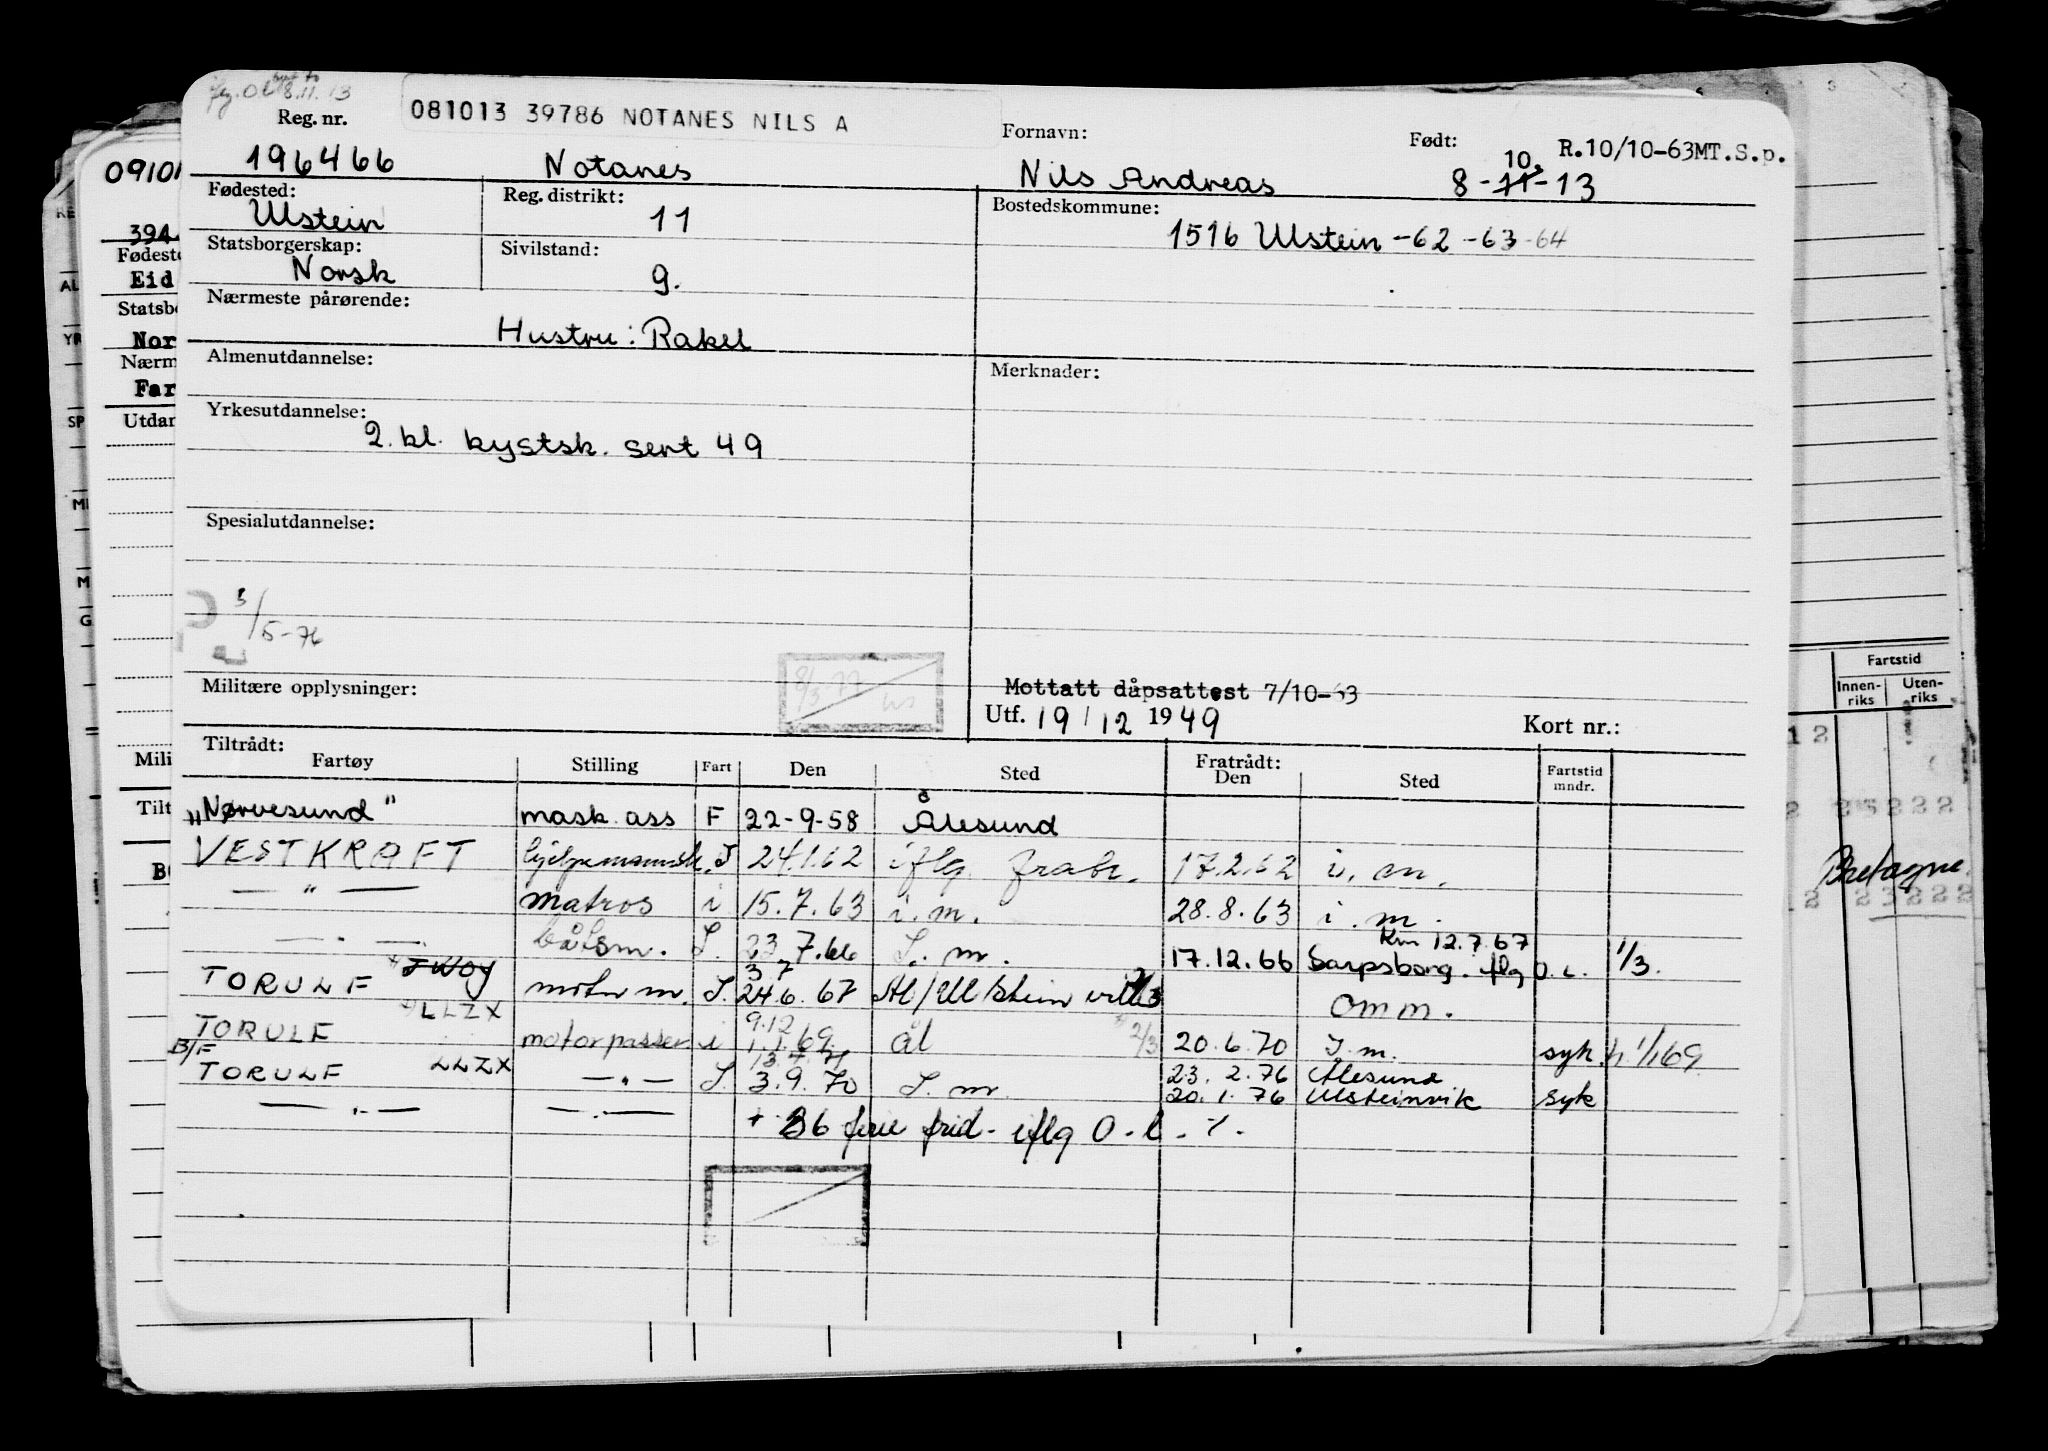 8.11.13
081013 39786 NOTANES NILS A
Reg. nr. Fornavn: Født: R.10/10-63MT.S.p.
196466 Notanes Nils Andreas 8-11-13
10.
Fødested: Reg. distrikt: Bostedskommune:
Ulstein 11 1516 Ulstein -62 -63 -64
Statsborgerskap: Sivilstand:
Norsk g.
Nærmeste pårørende:
Hustru: Rakel
Almenutdannelse: Merknader:
Yrkesutdannelse:
2. kl. kystsk. sert 49
Spesialutdannelse:
3/5-76
8/3-77
Militære opplysninger: Mottatt dåpsattest 7/10-63
Utf. 19/12 1949 Kort nr.:
Tiltrådt: Fratrådt:
Fartøy Stilling Fart Den Sted Den Sted Fartstid mndr.
"Nørvesund" mask. ass F 22-9-58 Ålesund
VESTKRAFT 24.1.62 iflg. 17.2.62 i. m.
— " — matros i 15.7.63 i. m. 28.8.63 i. m.
— " — båtsm. I. 23.7.66 I. m. 17.12.66 Sarpsborg. iflg O.l. 1/3.
12.7.67
TORULF motorm. I. 24.6.67 Omm.
3 7
LLZX
TORULF motorpasser i 1.1.69. Ål 2/3 20.6.70 I. m. syk. 1/1 69
9.12
B/F TORULF LLZX — " — I. 3.9.70 I. m. 23.2.76 Ålesund
— " — — " — 20.1.76 Ulsteinvik syk
+ 36 ferie frid- iflg O.l.
09101
394
Fødeste
Eid
Statsbo
Nor
Nærm
Far
Utdar
Mili
Tilt
Fartstid
Innen-riks Uten-riks
12
Bretagne